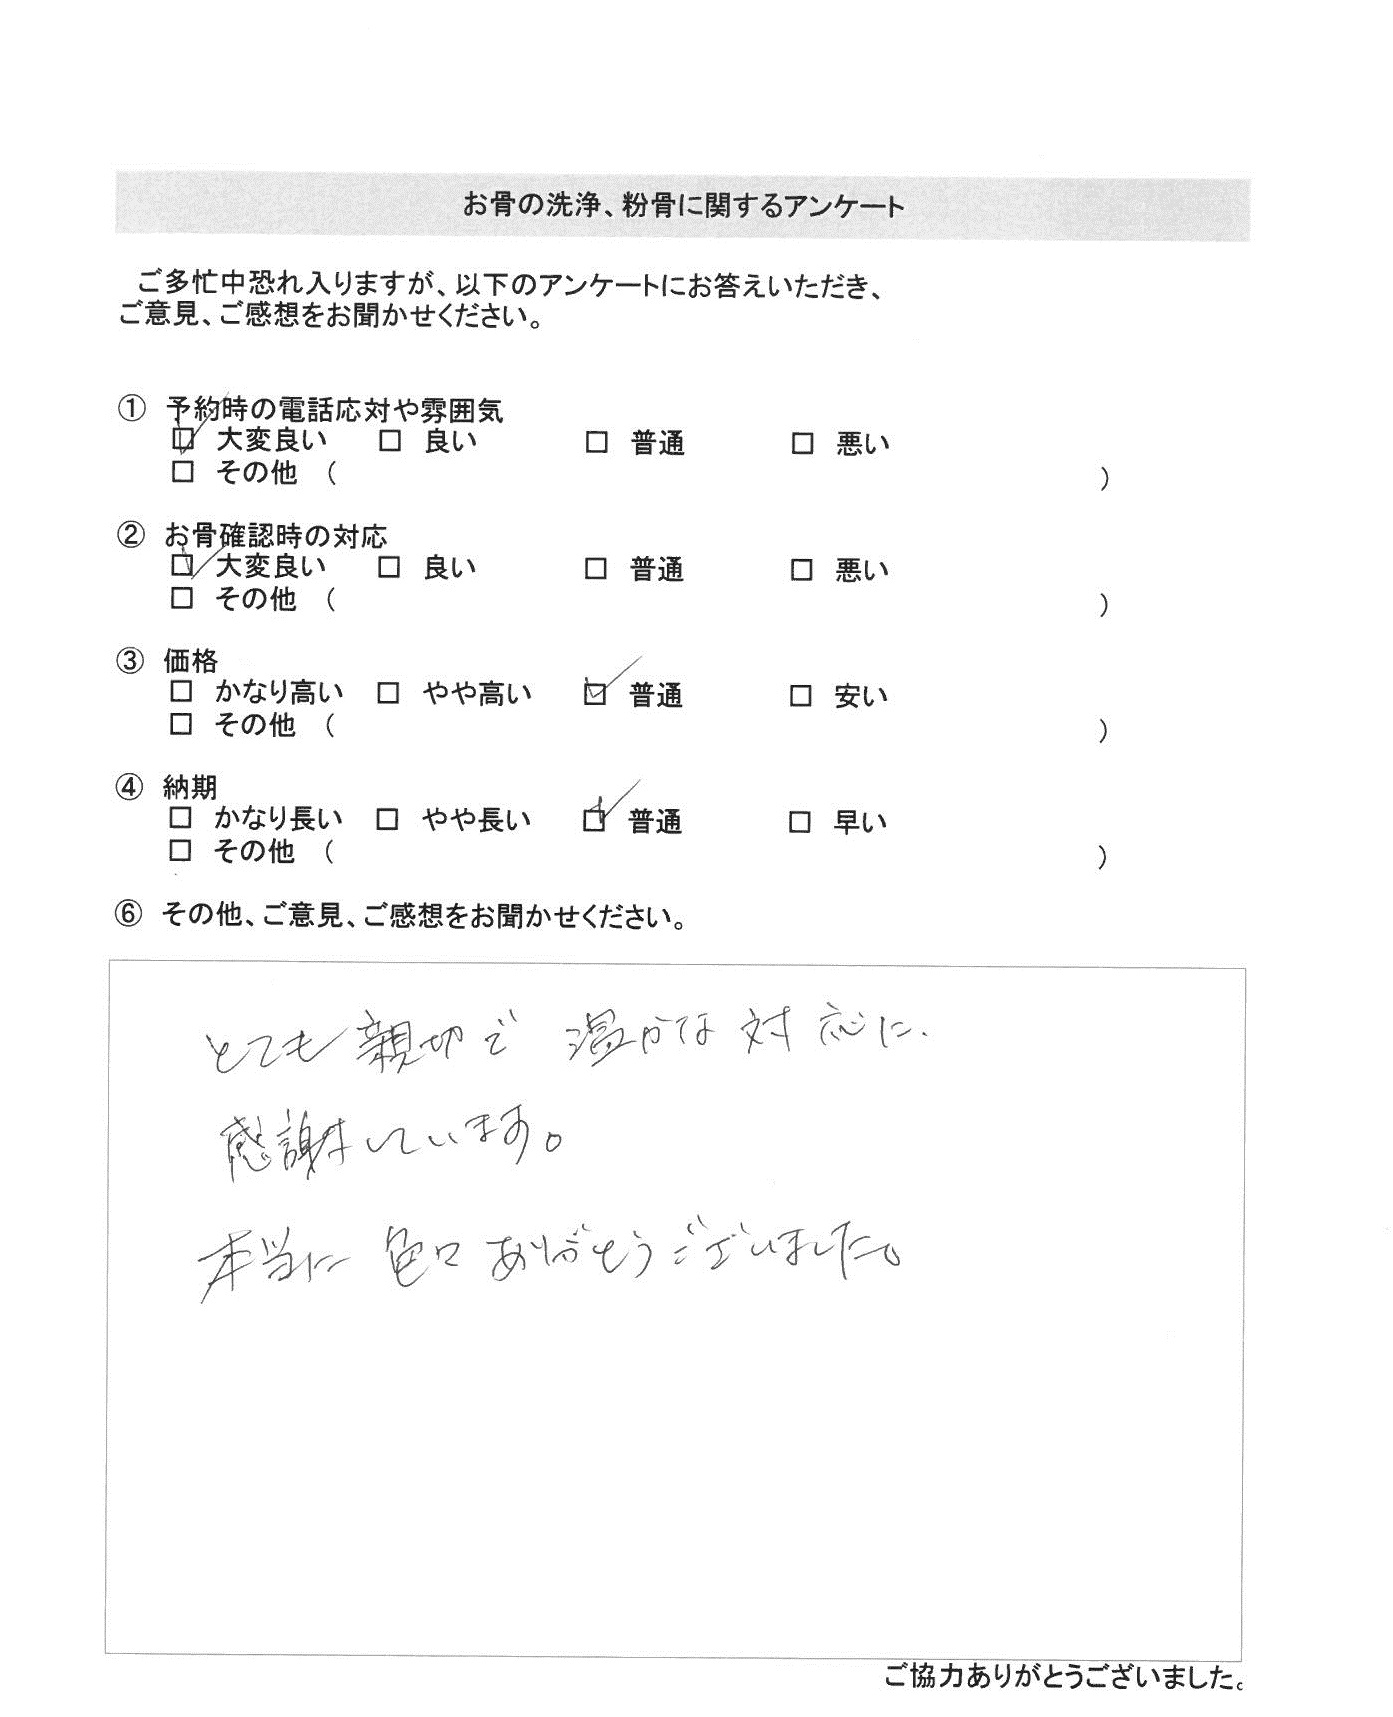 お骨の洗浄、粉骨に関するアンケート
ご多忙中恐れ入りますが、以下のアンケートにお答えいただき、
ご意見、ご感想をお聞かせください。
① 予約時の電話応対や雰囲気
☑ 大変良い □ 良い □ 普通 □ 悪い
□ その他 ( )
② お骨確認時の対応
☑ 大変良い □ 良い □ 普通 □ 悪い
□ その他 ( )
③ 価格
□ かなり高い □ やや高い ☑ 普通 □ 安い
□ その他 ( )
④ 納期
□ かなり長い □ やや長い ☑ 普通 □ 早い
□ その他 ( )
⑥ その他、ご意見、ご感想をお聞かせください。
とても親切で 温かな 対応に、
感謝しています。
本当に 色々 ありがとうございました。
ご協力ありがとうございました。